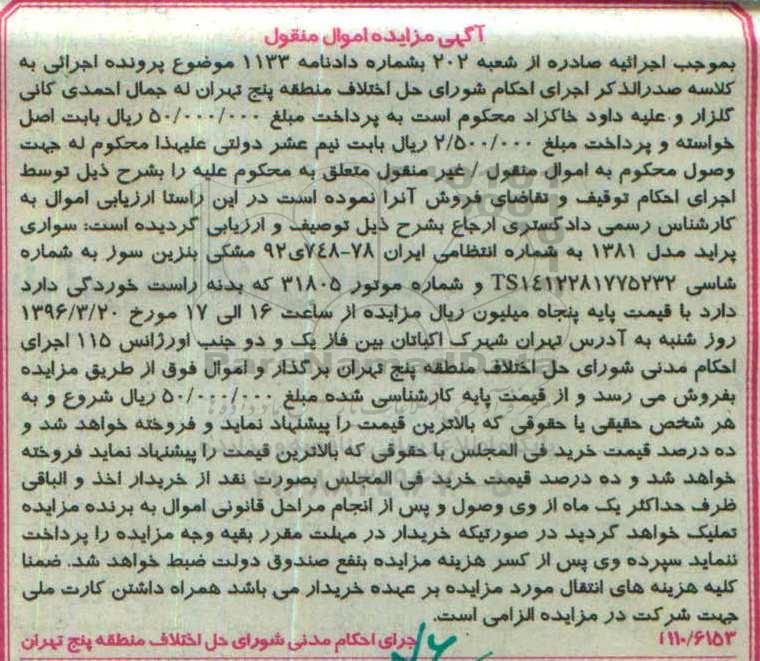 آگهی مزایده اموال منقول
بموجب اجرائیه صادره از شعبه ۲۰۲ بشماره دادنامه ۱۱۳۳ موضوع پرونده اجرائی به
کلاسه صدرالذکر اجرای احکام شورای حل اختلاف منطقه پنج تهران له جمال احمدی کانی
گلزار و علیه داود خاکزاد محکوم است به پرداخت مبلغ ۵۰/۰۰۰/۰۰۰ ریال بابت اصل
خواسته و پرداخت مبلغ ۲/۵۰۰/۰۰۰ ریال بابت نیم عشر دولتی علیهذا محکوم له جهت
وصول محکوم به اموال منقول / غیر منقول متعلق به محکوم علیه را بشرح ذیل توسط
اجرای احکام توقیف و تقاضای فروش آنرا نموده است در این راستا ارزیابی اموال به
کارشناس رسمی دادگستری ارجاع بشرح ذیل توصیف و ارزیابی گردیده است: سواری
پراید مدل ۱۳۸۱ به شماره انتظامی ایران ۷۸-۷۴۸ی۹۲ مشکی بنزین سوز به شماره
شاسی TS۱٤۱۲۲۸۱۷۷۵۲۳۲ و شماره موتور ۳۱۸۰۵ که بدنه راست خوردگی دارد
دارد با قیمت پایه پنجاه میلیون ریال مزایده از ساعت ۱۶ الی ۱۷ مورخ ۱۳۹۶/۳/۲۰
روز شنبه به آدرس تهران شهرک اکباتان بین فاز یک و دو جنب اورژانس ۱۱۵ اجرای
احکام مدنی شورای حل اختلاف منطقه پنج تهران برگذار و اموال فوق از طریق مزایده
بفروش می رسد و از قیمت پایه کارشناسی شده مبلغ ۵۰/۰۰۰/۰۰۰ ریال شروع و به
هر شخص حقیقی یا حقوقی که بالاترین قیمت را پیشنهاد نماید و فروخته خواهد شد و
ده درصد قیمت خرید فی المجلس با حقوقی که بالاترین قیمت را پیشنهاد نماید فروخته
خواهد شد و ده درصد قیمت خرید فی المجلس بصورت نقد از خریدار اخذ و الباقی
ظرف حداکثر یک ماه از وی وصول و پس از انجام مراحل قانونی اموال به برنده مزایده
تملیک خواهد گردید در صورتیکه خریدار در مهلت مقرر بقیه وجه مزایده را پرداخت
ننماید سپرده وی پس از کسر هزینه مزایده بنفع صندوق دولت ضبط خواهد شد. ضمنا
کلیه هزینه های انتقال مورد مزایده بر عهده خریدار می باشد همراه داشتن کارت ملی
جهت شرکت در مزایده الزامی است.
۱۱۰/۶۱۵۳ اجرای احکام مدنی شورای حل اختلاف منطقه پنج تهران
ParsNamadData